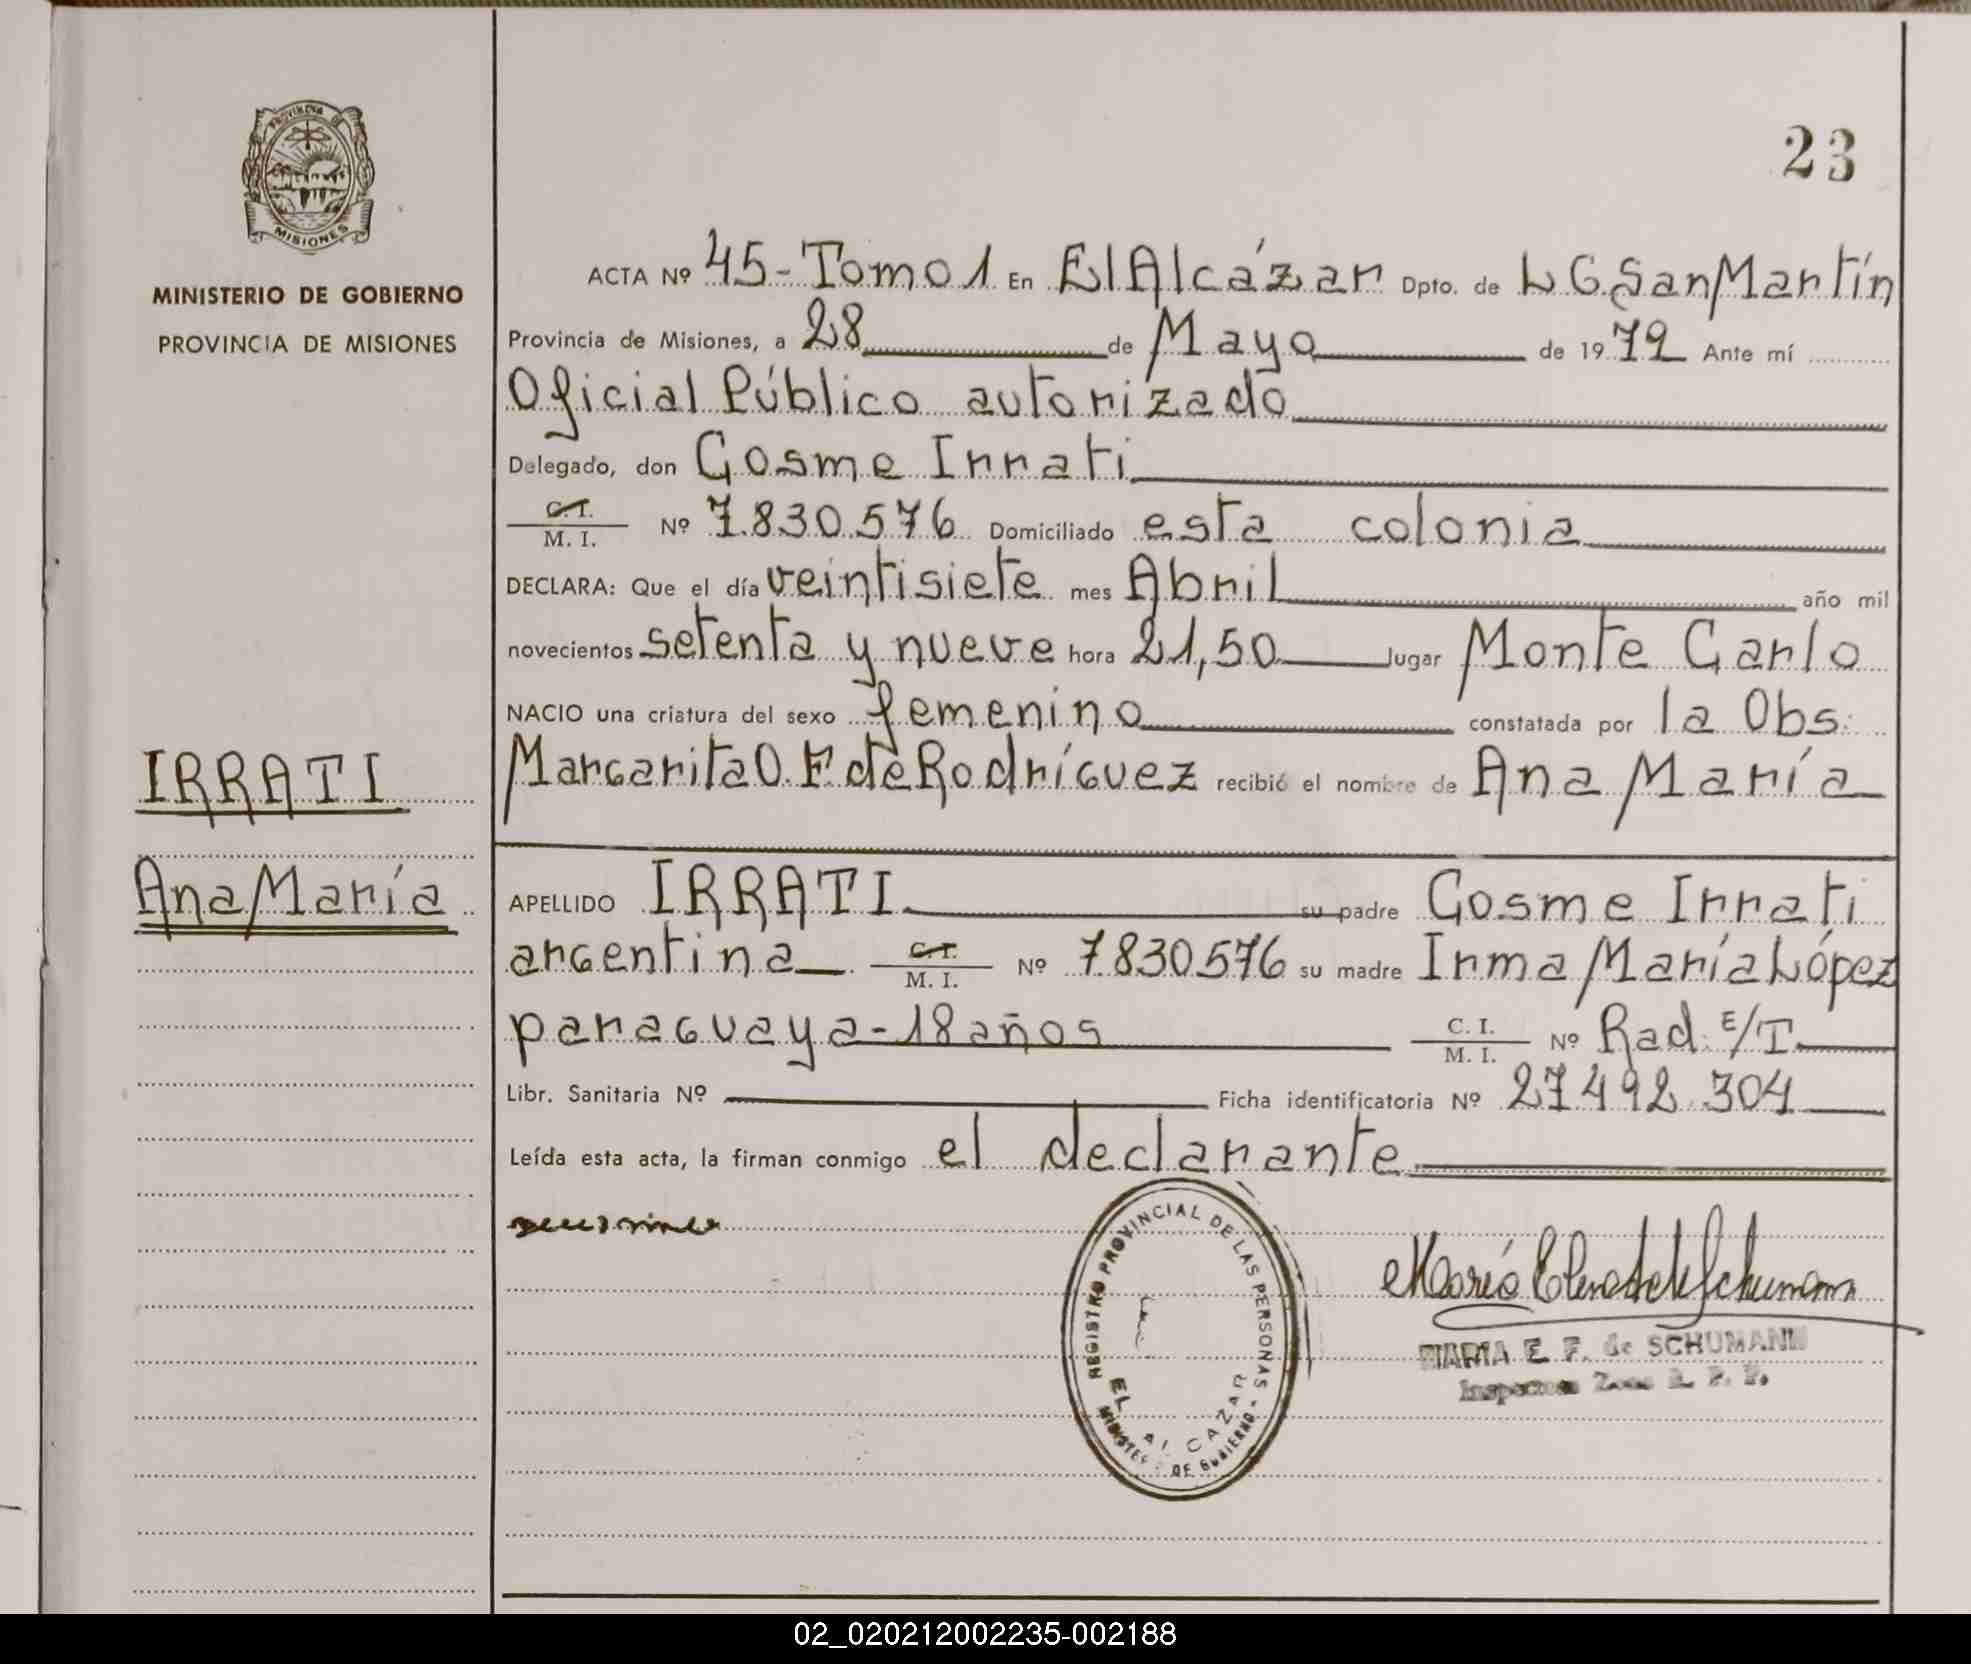 PROVINCIA DE
MISIONES
MINISTERIO DE GOBIERNO
PROVINCIA DE MISIONES
IRRATI
Ana María
23
ACTA Nº 45-Tomo 1 En El Alcázar Dpto. de L G San Martín
Provincia de Misiones, a 28 de Mayo de 1979 Ante mí
Oficial Público autorizado
Delegado, don Cosme Irrati
C. I. M. I. Nº 7.830.576 Domiciliado esta colonia
DECLARA: Que el día veintisiete mes Abril año mil
novecientos setenta y nueve hora 21,50 lugar Monte Carlo
NACIO una criatura del sexo femenino constatada por la Obs.
Margarita O. F. de Rodríguez recibió el nombre de Ana María
APELLIDO IRRATI su padre Cosme Irrati
argentina C. I. M. I. Nº 7830576 su madre Irma María López
paraguaya-18 años C. I. M. I. Nº Rad. E/T.
Libr. Sanitaria Nº Ficha identificatoria Nº 27.492.304
Leída esta acta, la firman conmigo el declarante
REGISTRO PROVINCIAL DE LAS PERSONAS
EL ALCAZAR
DE GOBIERNO
MARIA E. F. de SCHUMANN
02_020212002235-002188